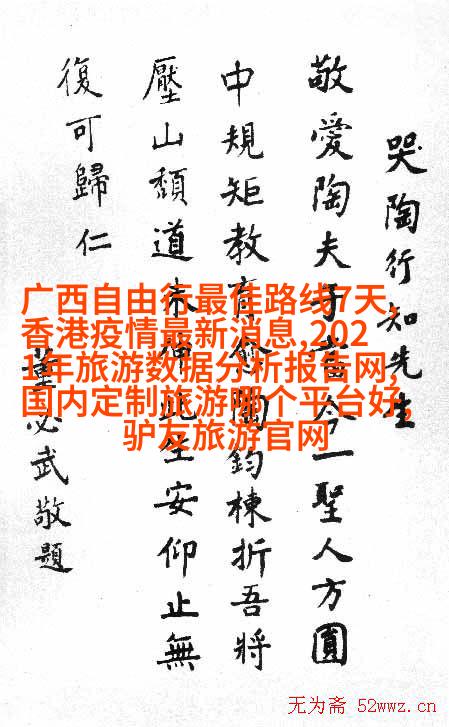 哭陶行知先生
敬愛陶夫子當今一聖人方圓
中規矩教育愈陶鈞棟折吾將
壓山頹道未伸此生安仰止無
復可歸仁
董必武敬題
广西自由行最佳路线7天,
香港疫情最新消息,202
1年旅游数据分析报告网,
国内定制旅游哪个平台好,
驴友旅游官网
无为斋 52wwz.cn